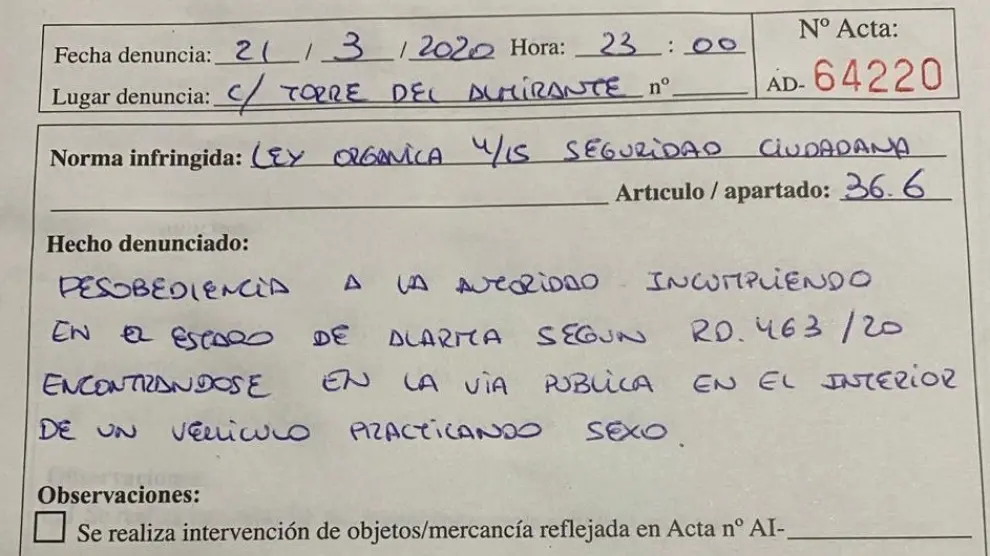 Fecha denuncia: 21 / 3 / 2020 Hora: 23 : 00
Nº Acta:
Lugar denuncia: C/ TORRE DEL ALMIRANTE nº
AD- 64220
Norma infringida: LEY ORGANICA 4/15 SEGURIDAD CIUDADANA
Artículo / apartado: 36.6
Hecho denunciado:
DESOBEDIENCIA A LA AUTORIDAD INCUMPLIENDO
EN EL ESTADO DE ALARMA SEGUN RD. 463/20
ENCONTRANDOSE EN LA VIA PUBLICA EN EL INTERIOR
DE UN VEHICULO PRACTICANDO SEXO.
Observaciones:
Se realiza intervención de objetos/mercancía reflejada en Acta nº AI-